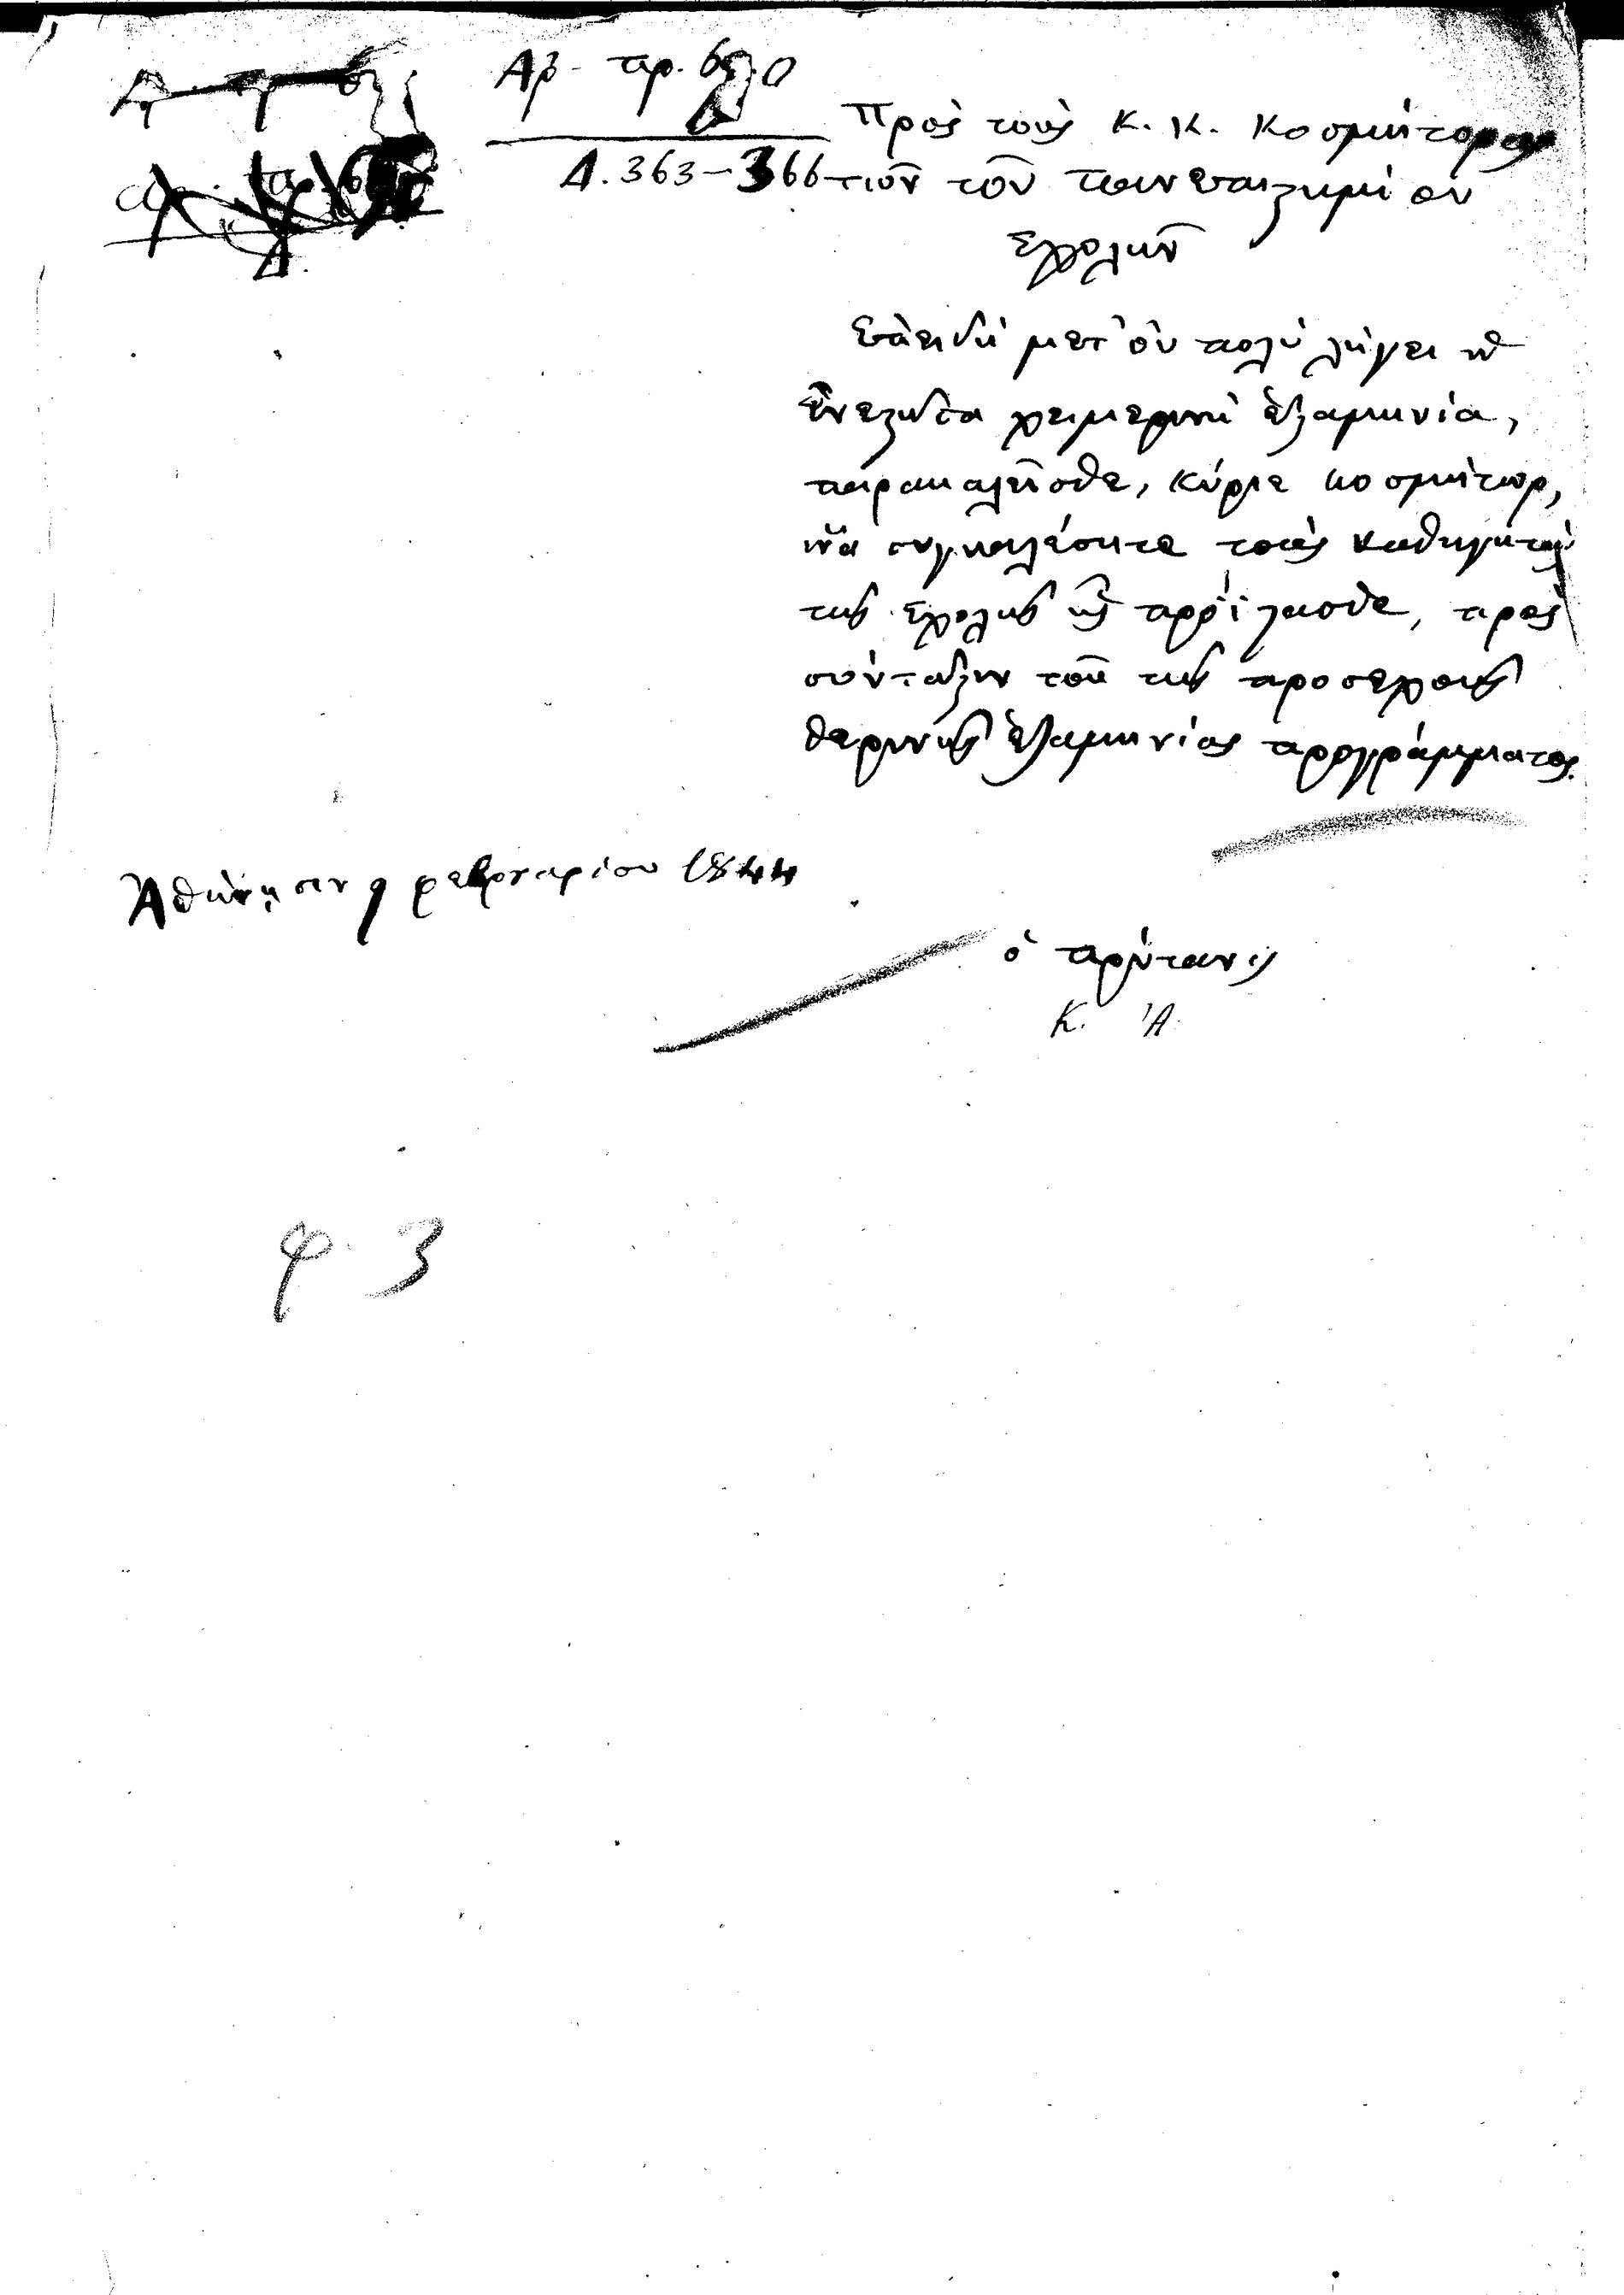 Αρ. πρ.
Δ. 363–366
Πρὸς τοὺς Κ. Κ. Κοσμήτορας
τῶν τοῦ Πανεπιστημίου
Σχολῶν
Ἐπειδὴ μετ' οὐ πολὺ λήγει ἡ
ἐνεστῶσα χειμερινὴ ἑξαμηνία,
παρακαλεῖσθε, Κύριε Κοσμήτωρ,
νὰ συγκαλέσητε τοὺς καθηγητὰς
τῆς Σχολῆς ἧς προΐστασθε, πρὸς
σύνταξιν τοῦ τῆς προσεχοῦς
θερινῆς ἑξαμηνίας προγράμματος.
Ἀθήνησιν 9 φεβρουαρίου 1844
ὁ πρύτανις
Κ. Ἀ.
φ. 3